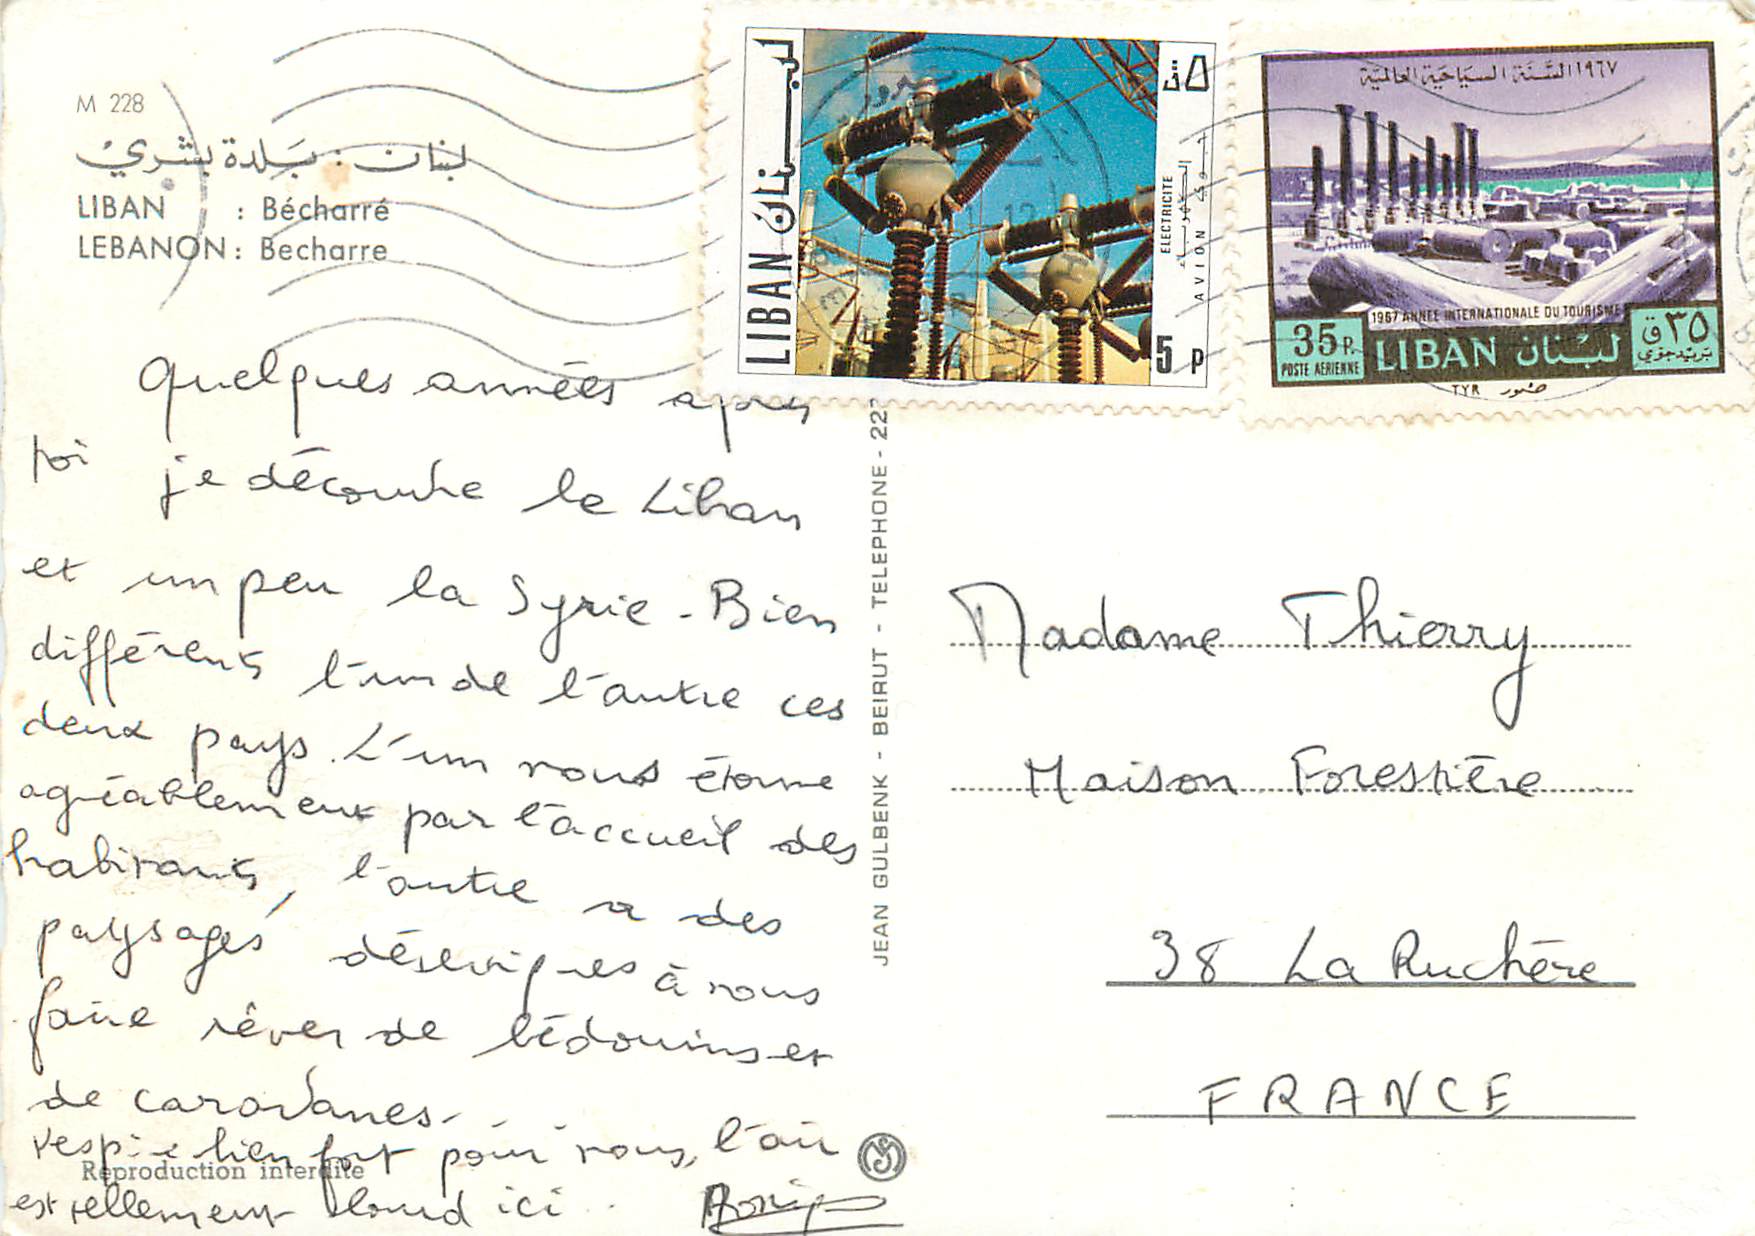 M 228
لبنان : بلدة بشري
LIBAN : Bécharré
LEBANON : Becharre
لبنان
LIBAN
ELECTRICITE
الكهرباء
AVION
جوي
5 P
٥ ق
١٩٦٧ السنة السياحية العالمية
1967 ANNEE INTERNATIONALE DU TOURISME
35 P.
POSTE AERIENNE
LIBAN لبنان
٣٥ ق
بريد جوي
TYR صور
Quelques années après
toi je découvre le Liban
et un peu la Syrie - Bien
différents l'un de l'autre ces
deux pays. L'un nous étonne
agréablement par l'accueil des
habitants, l'autre a des
paysages désertiques à nous
faire rêver de bédouins et
de caravanes.
respire bien fort pour nous, l'air
est tellement lourd ici ..
Reproduction interdite
JEAN GULBENK - BEIRUT - TELEPHONE - 22
Madame Thierry
Maison Forestière
38 La Ruchère
FRANCE